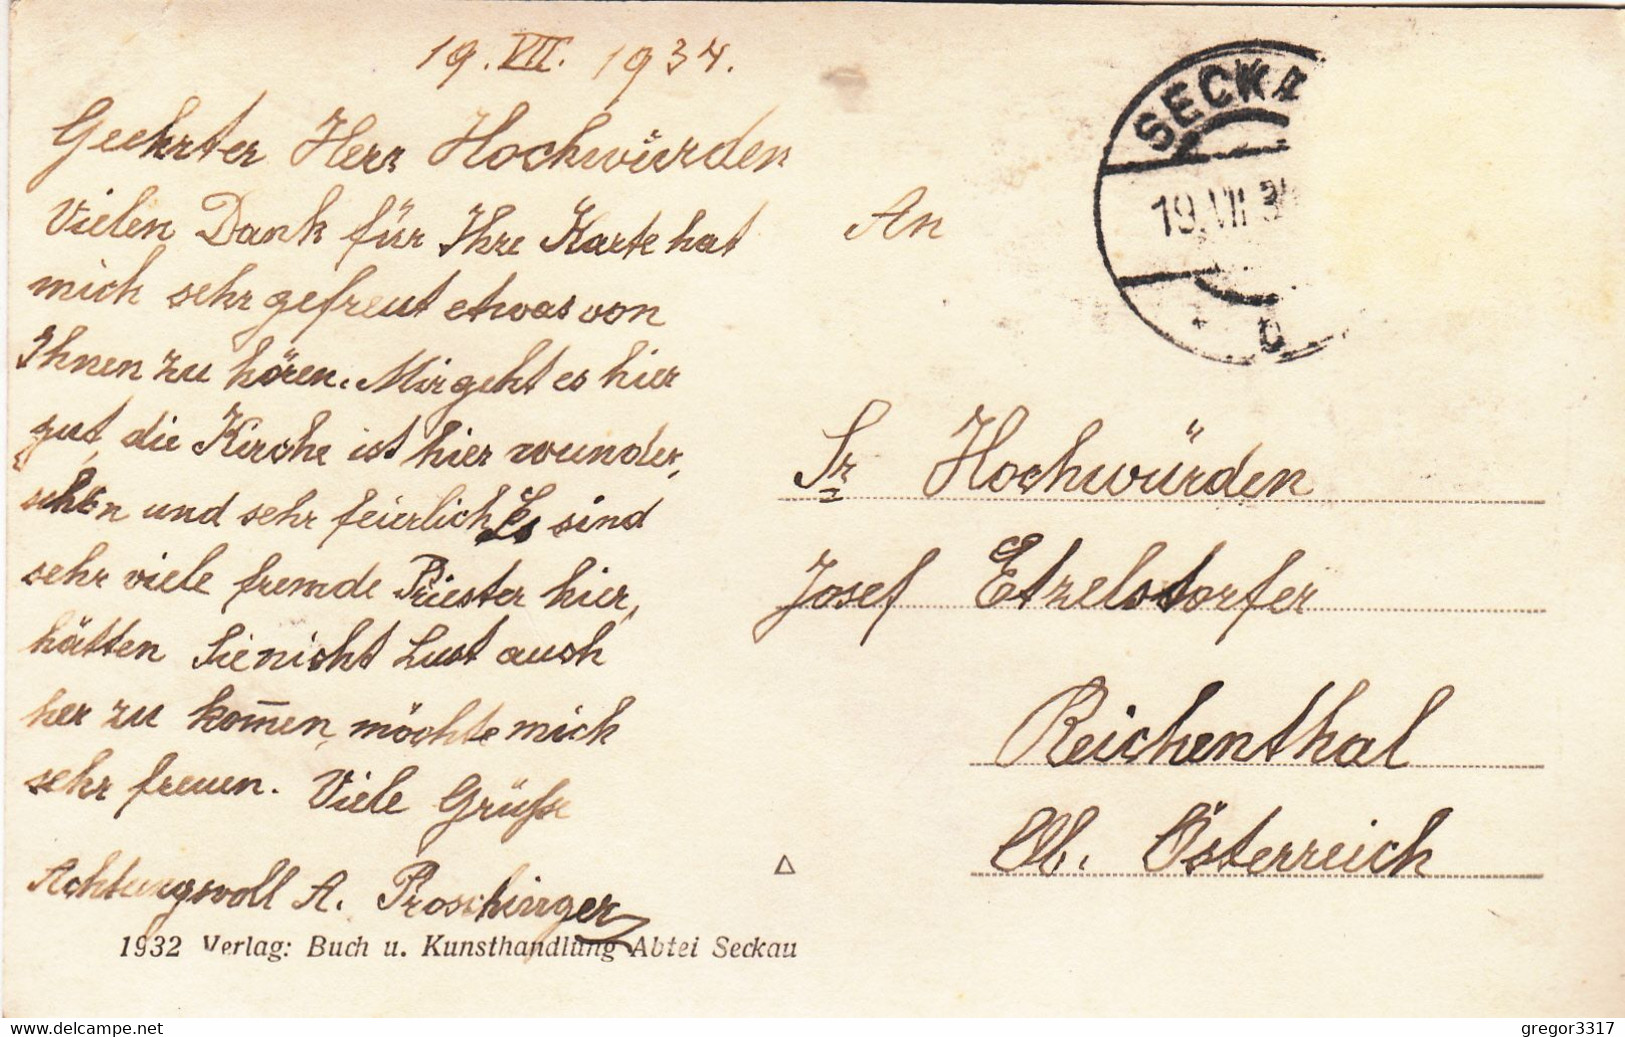 19. VII. 1934.
Geehrter Herr Hochwürden
Vielen Dank für Ihre Karte hat
mich sehr gefreut etwas von
Ihnen zu hören. Mir geht es hier
gut, die Kirche ist hier wunder,
schön und sehr feierlich Es sind
sehr viele fremde Priester hier,
hätten Sie nicht Lust auch
her zu kom̅en, möchte mich
sehr freuen. Viele Grüße
Achtungsvoll A. Proschinger
1932 Verlag: Buch u. Kunsthandlung Abtei Seckau
SECKA
19.VII.34
An
Sr Hochwürden
Josef Etzelstorfer
Reichenthal
Ob. Österreich
www.delcampe.net
gregor3317